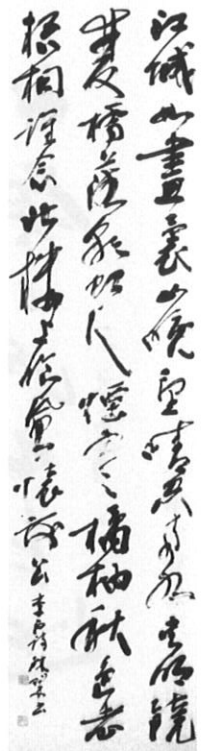 江城如畫裏山曉望晴空兩水夾明鏡
雙橋落彩虹人煙寒橘柚秋色老
梧桐誰念北樓上臨風懷謝公 李白詩